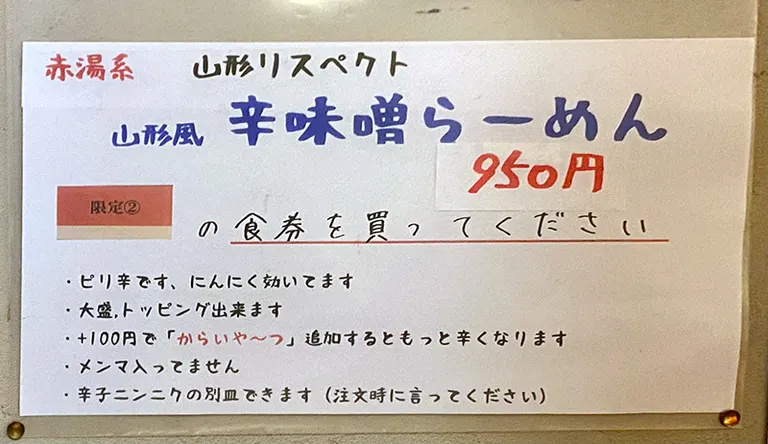 赤湯系　山形リスペクト
山形風 辛味噌らーめん
950円
限定②の食券を買ってください
・ピリ辛です、にんにく効いてます
・大盛,トッピング出来ます
・+100円で「からいや〜つ」追加するともっと辛くなります
・メンマ入ってません
・辛子ニンニクの別皿できます（注文時に言ってください）